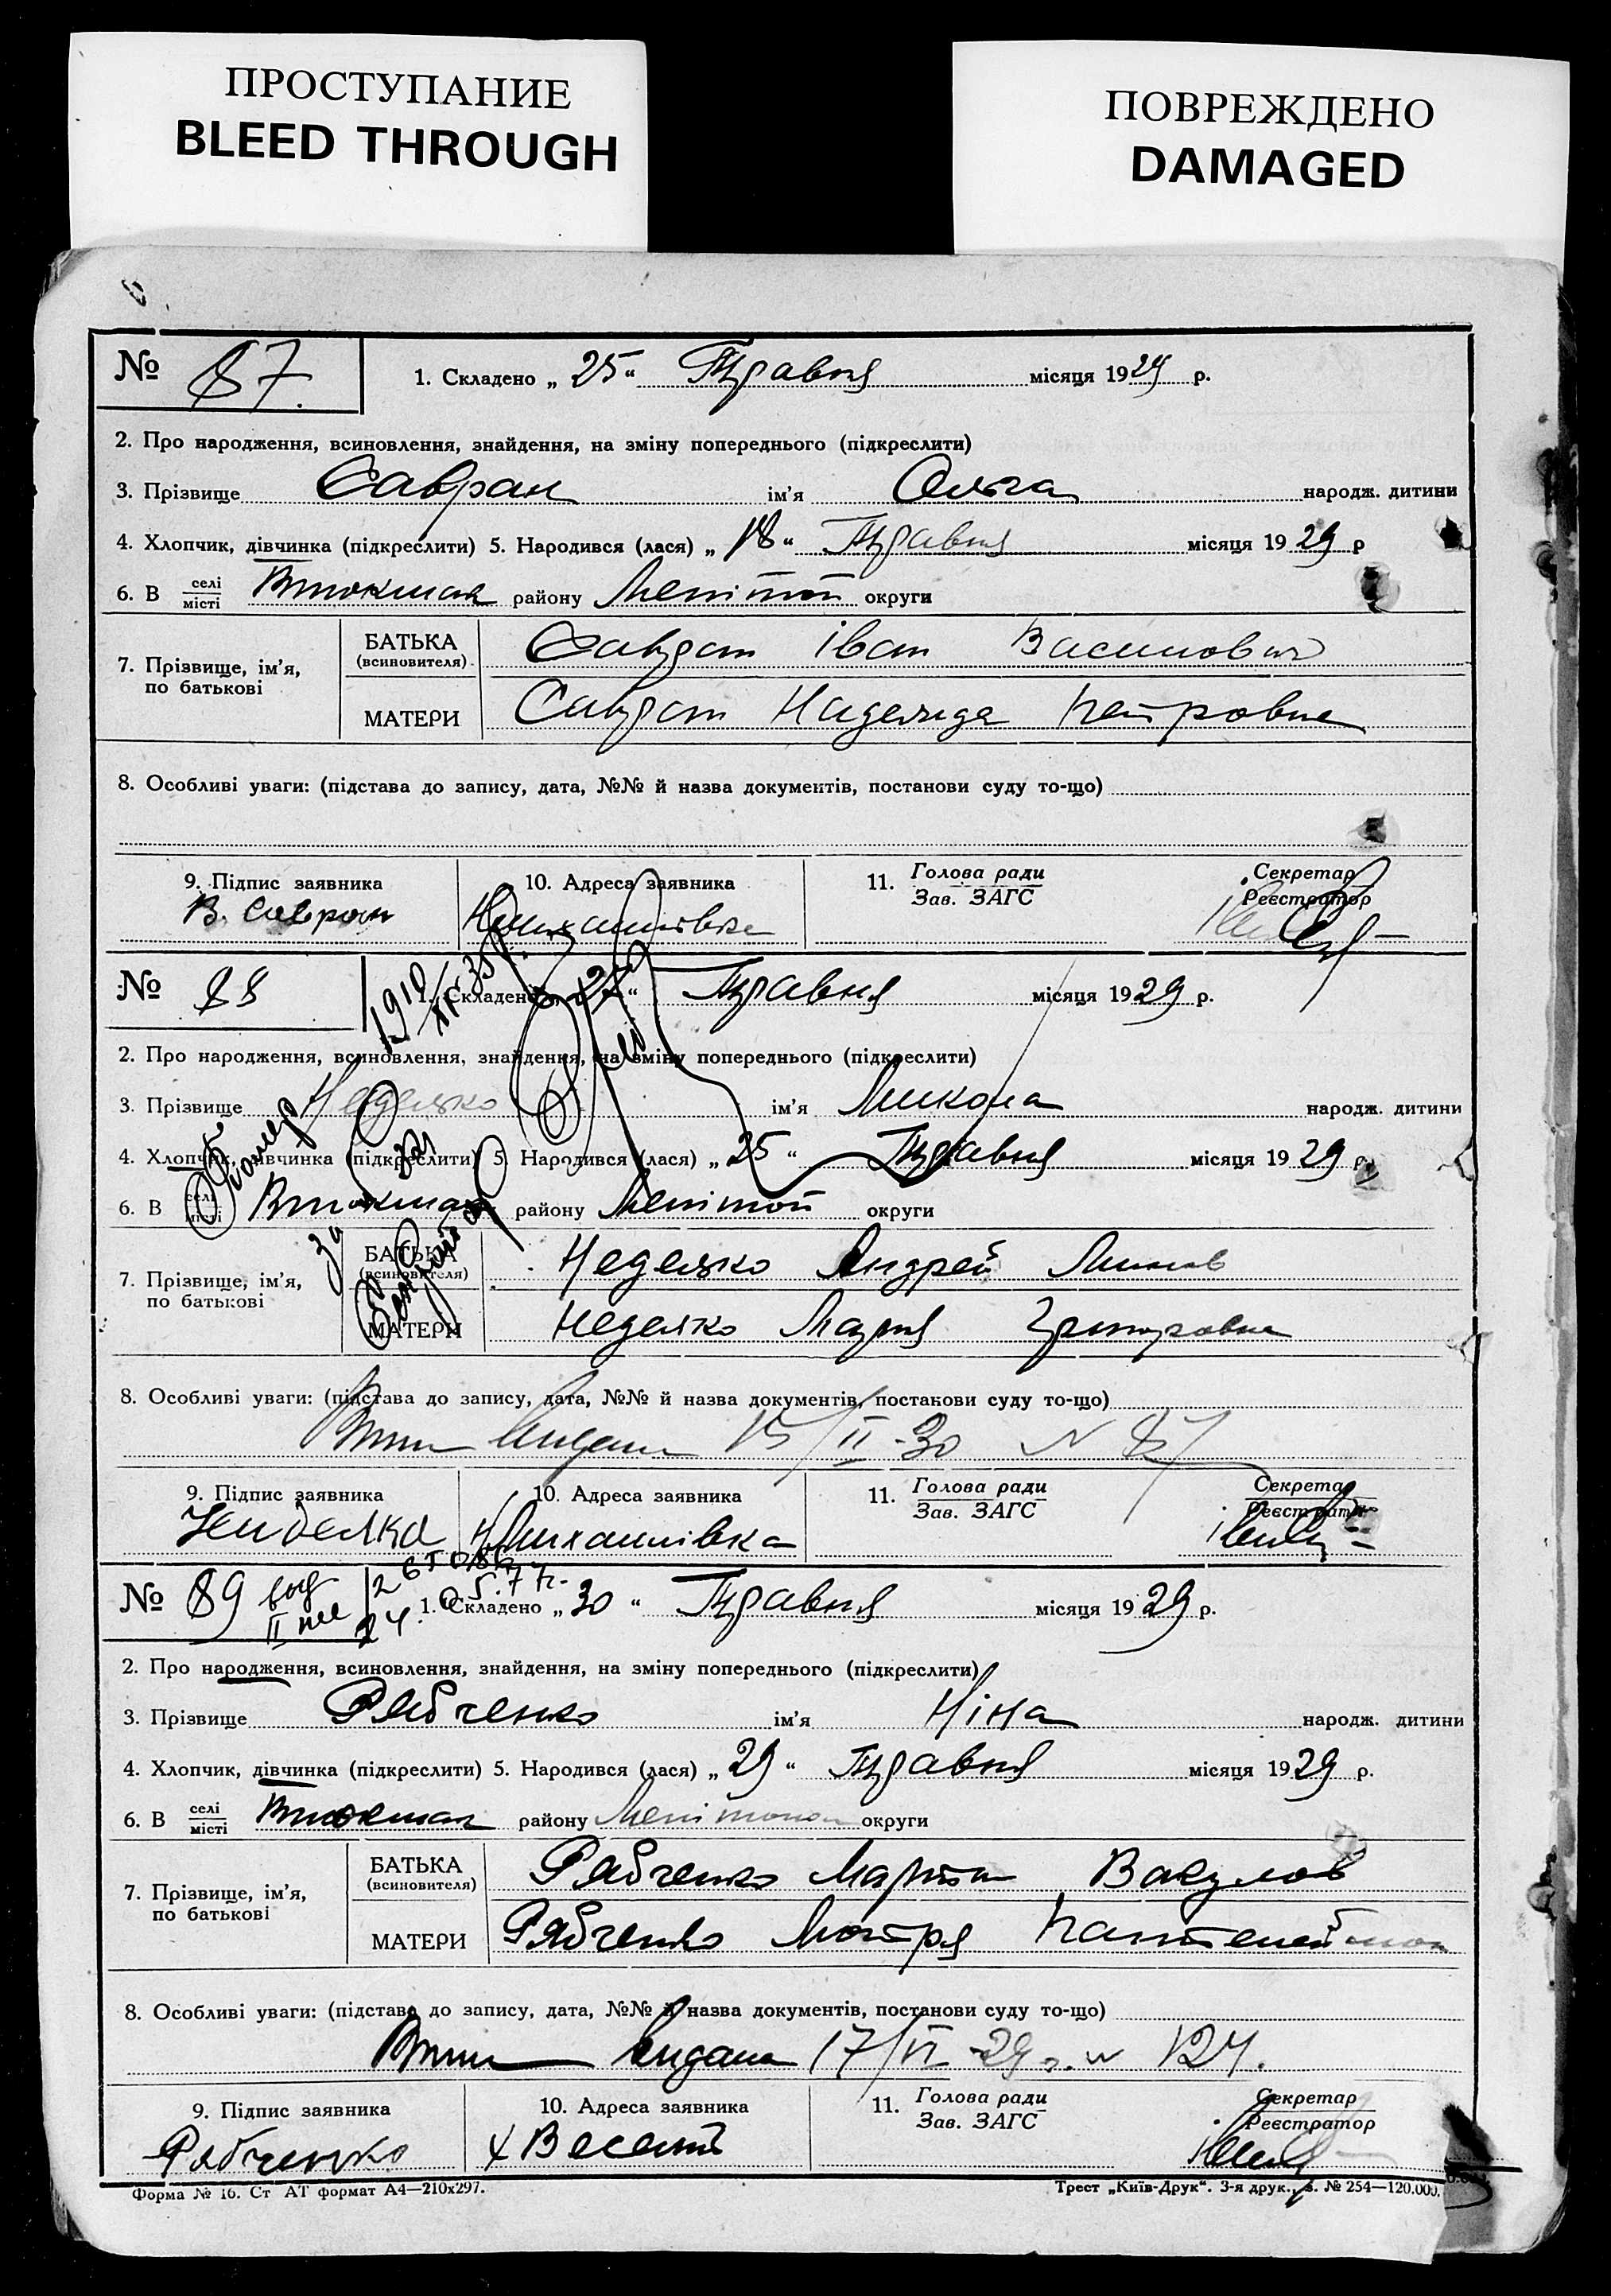 ПРОСТУПАНИЕ
BLEED THROUGH
ПОВРЕЖДЕНО
DAMAGED
№ 87. 1. Складено „ 25 “ Травня місяця 1929 р.
2. Про народження, всиновлення, знайдення, на зміну попереднього (підкреслити)
3. Прізвище Савран ім'я Ольга народж. дитини
4. Хлопчик, дівчинка (підкреслити) 5. Народився (лася) „ 18 “ Травня місяця 1929 р
6. В селі місті Втокмак району Мелітоп округи
7. Прізвище, ім'я, по батькові
БАТЬКА (всиновителя) Савран Іван Василович
МАТЕРИ Савран Надежда Петровна
8. Особливі уваги: (підстава до запису, дата, №№ й назва документів, постанови суду то-що)
9. Підпис заявника 10. Адреса заявника 11. Голова ради Зав. ЗАГС Секретар Реєстратор
В. Савран Н Михайлівка
№ 88 1. Складено „ “ Травня місяця 1929 р.
2. Про народження, всиновлення, знайдення, на зміну попереднього (підкреслити)
3. Прізвище Неделько ім'я Микола народж. дитини
4. Хлопчик, дівчинка (підкреслити) 5. Народився (лася) „ 25 “ Травня місяця 1929 р.
6. В селі місті Втокмак району Мелітоп округи
7. Прізвище, ім'я, по батькові
БАТЬКА (всиновителя) Неделько Андрей
МАТЕРИ Неделко Мария Григоровна
8. Особливі уваги: (підстава до запису, дата, №№ й назва документів, постанови суду то-що)
15/II-30 N 87
9. Підпис заявника 10. Адреса заявника 11. Голова ради Зав. ЗАГС Секретар Реєстратор
Н Михайлівка
№ 89 1. Складено „ 30 “ Травня місяця 1929 р.
2. Про народження, всиновлення, знайдення, на зміну попереднього (підкреслити)
3. Прізвище Рябченко ім'я Ніна народж. дитини
4. Хлопчик, дівчинка (підкреслити) 5. Народився (лася) „ 29 “ Травня місяця 1929 р.
6. В селі місті Втокмак району Мелітопол округи
7. Прізвище, ім'я, по батькові
БАТЬКА (всиновителя) Рябченко Мартин Вакулов
МАТЕРИ Рябченко Мотря
8. Особливі уваги: (підстава до запису, дата, №№ й назва документів, постанови суду то-що)
видана 17/VI-29 р. N 124.
9. Підпис заявника 10. Адреса заявника 11. Голова ради Зав. ЗАГС Секретар Реєстратор
Рябченко
Форма № 16. Ст АТ формат А4—210х297. Трест „Київ-Друк“. 3-я друк., з. № 254—120.000.